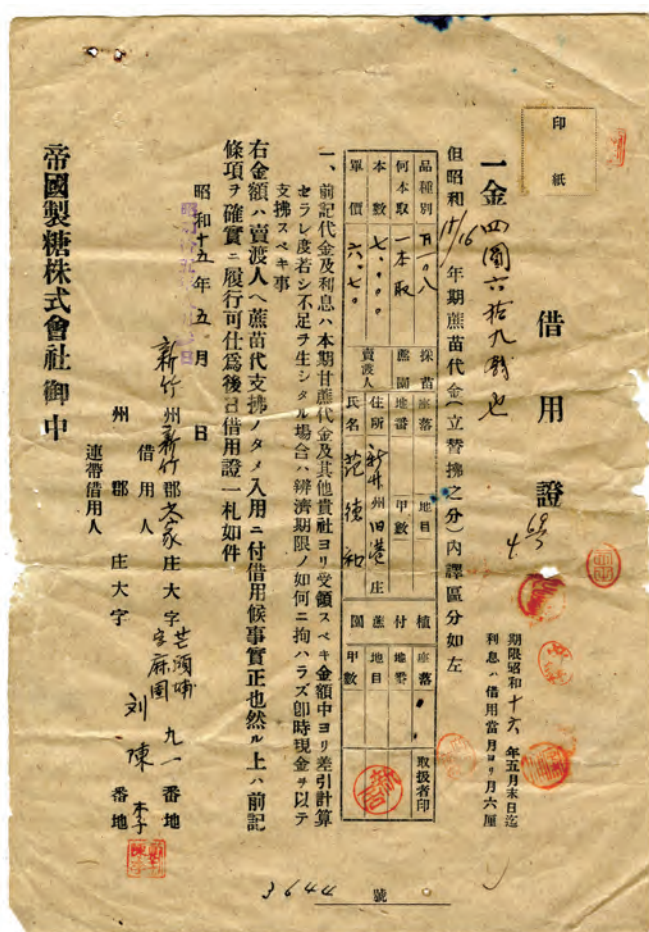 印紙
借用證
一金 四圓六拾九錢也
4 69
期限昭和十六年五月末日迄
利息ハ借用當月ヨリ月六厘
但昭和15/16年期蔗苗代金(立替拂之分)內譯區分如左
品種別 一〇八
何本取 一本取
本數 七〇〇〇
單價 六.七〇
採苗蔗園 座落 地目
地番 甲數
賣渡人 住所 新竹州旧港庄
氏名 范德和
植付蔗園 座落
地番
地目
甲數
取扱者印
一、前記代金及利息ハ本期甘蔗代金及其他貴社ヨリ受領スベキ金額中ヨリ差引計算
セラレ度若シ不足ヲ生シタル場合ハ辨濟期限ノ如何ニ拘ハラズ卽時現金ヲ以テ
支拂スベキ事
右金額ハ賣渡人ヘ蔗苗代支拂ノタメ入用ニ付借用候事實正也然ル上ハ前記
條項ヲ確實ニ履行可仕爲後日借用證一札如件
昭和十五年五月 日
新竹州新竹郡六家庄大字芒頭埔字麻園九一番地
借用人 刘陳
州 郡 庄大字 番地
連帶借用人
帝國製糖株式會社御中
3644 號